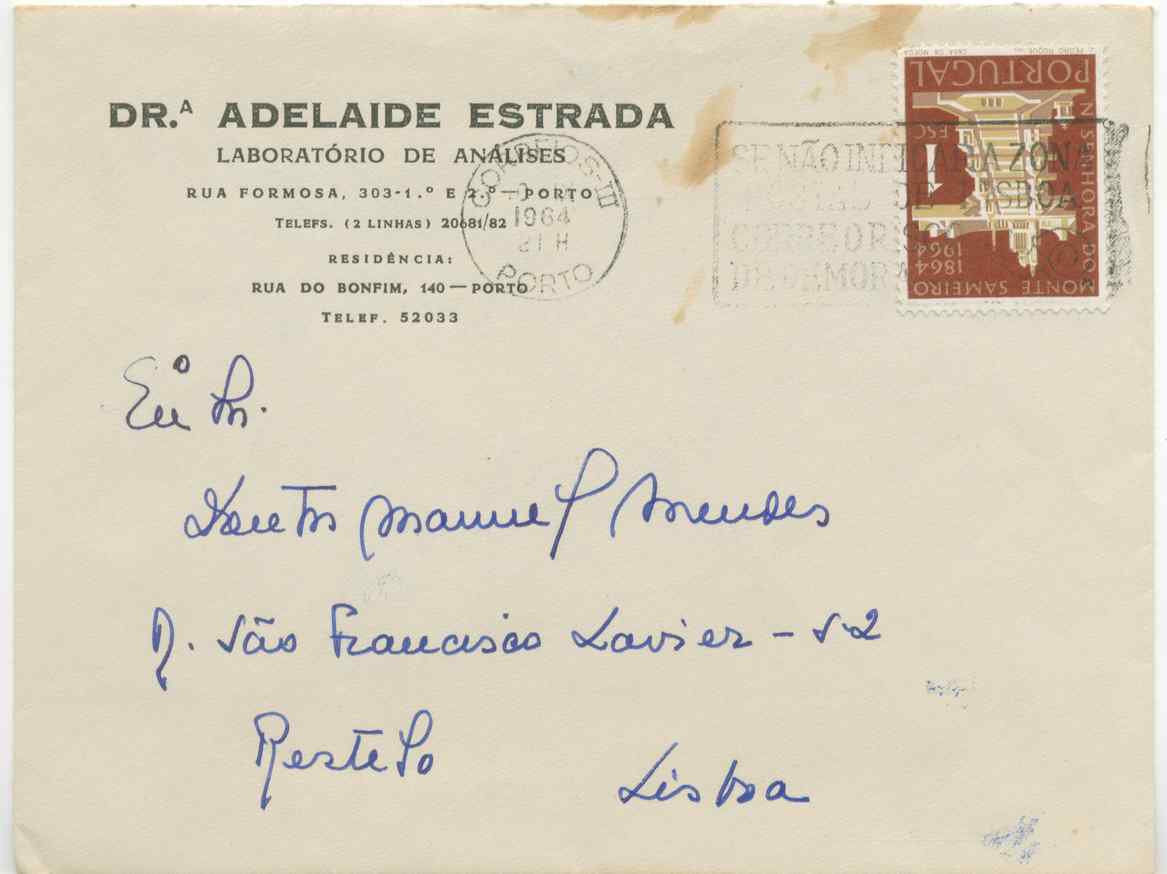 DR.ª ADELAIDE ESTRADA
LABORATÓRIO DE ANÁLISES
RUA FORMOSA, 303-1.º E 2.º — PORTO
TELEFS. (2 LINHAS) 20681/82
RESIDÊNCIA:
RUA DO BONFIM, 140 — PORTO
TELEF. 52033
CORREIOS-III
1964
21 H
PORTO
SE NÃO INDICAR A ZONA
POSTAL DE LISBOA
CORRE O RISCO
DE DEMORA
J. PEDRO ROQUE CASA DA MOEDA
PORTUGAL
N. SENHORA DO
MONTE SAMEIRO
1864
1964
1 ESC
Manuel Mendes
R. São Francisco Xavier -
Restelo
Lisboa